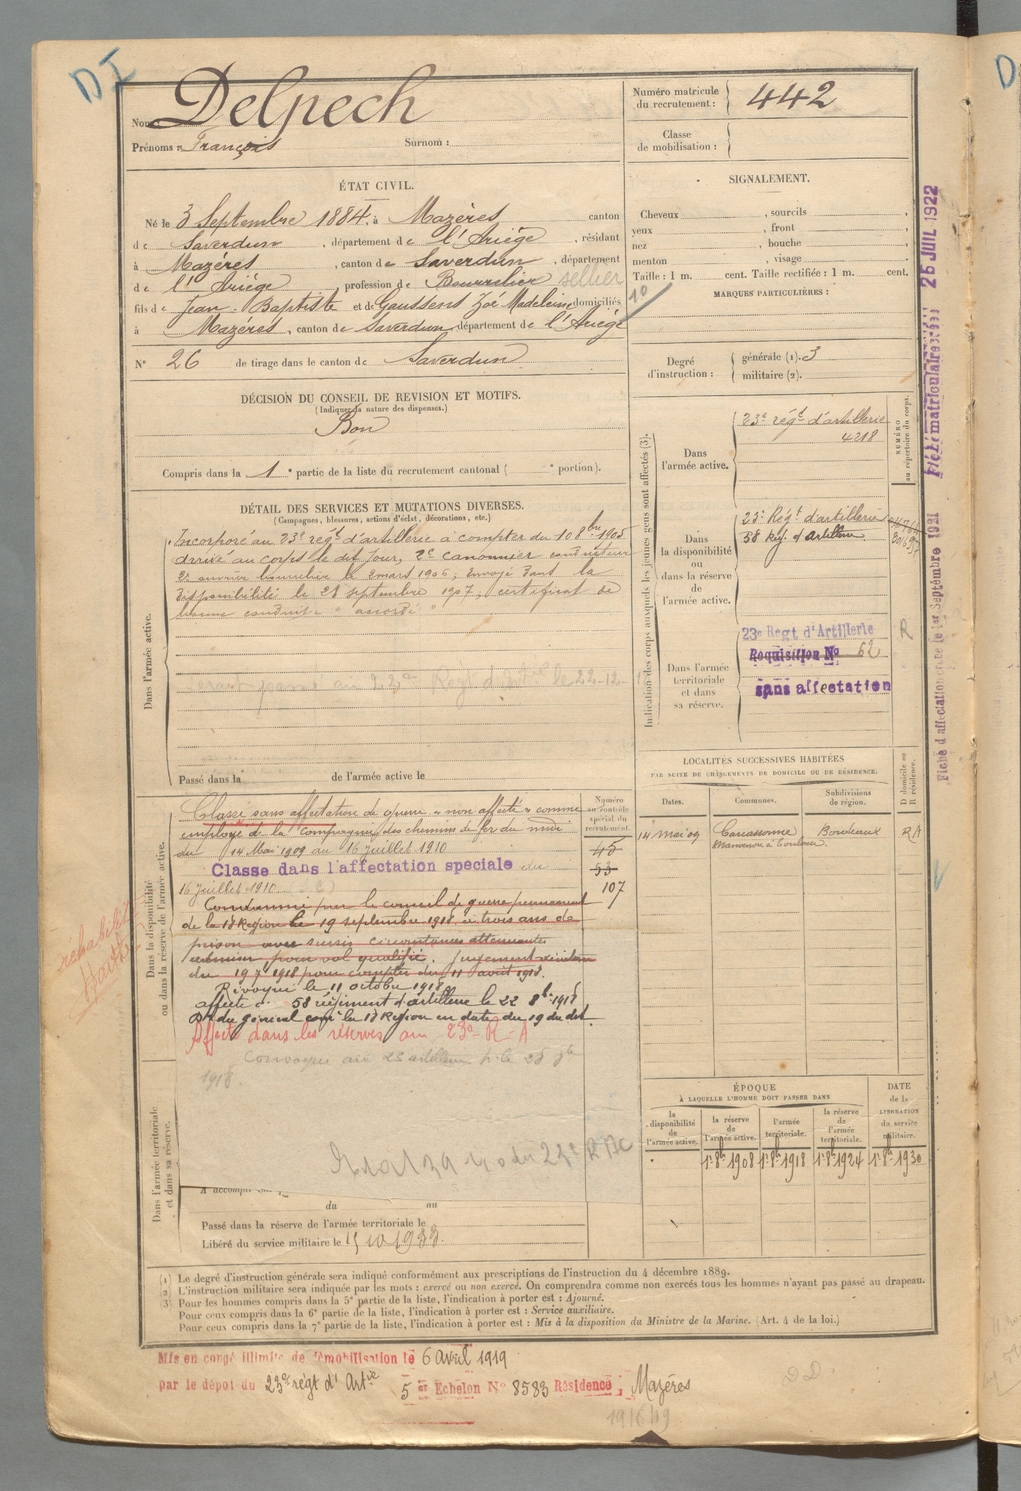 DI
Nom : Delpech
Prénoms : François Surnom :
Numéro matricule du recrutement : 442
Classe de mobilisation :
ÉTAT CIVIL.
Né le 3 Septembre 1884, à Mazères canton
de Saverdun, département de l'Ariège, résidant
à Mazères, canton de Saverdun, département
de l'Ariège, profession de Bourrelier sellier
fils de Jean-Baptiste et de Gaussens Zoé Madeleine domiciliés
à Mazères, canton de Saverdun, département de l'Ariège
N° 26 de tirage dans le canton de Saverdun
SIGNALEMENT.
Cheveux , sourcils ,
yeux , front ,
nez , bouche ,
menton , visage ,
Taille : 1 m. cent. Taille rectifiée : 1 m. cent.
10
MARQUES PARTICULIÈRES :
Degré d'instruction : générale (1). 3
militaire (2).
DÉCISION DU CONSEIL DE REVISION ET MOTIFS.
(Indiquer la nature des dispenses.)
Bon
Compris dans la 1e partie de la liste du recrutement cantonal ( e portion).
DÉTAIL DES SERVICES ET MUTATIONS DIVERSES.
(Campagnes, blessures, actions d'éclat, décorations, etc.)
Dans l'armée active.
Incorporé au 23e régt d'artillerie à compter du 10 8bre 1905
arrivé au corps le dit jour, 2e canonnier conducteur
2e ouvrier bourrelier le 2 mars 1906; envoyé dans la
disponibilité le 28 septembre 1907; certificat de
bonne conduite "accordé"
Passé dans la de l'armée active le
Indication des corps auxquels les jeunes gens sont affectés (3).
NUMÉRO au répertoire du corps.
Dans l'armée active.
23e régt d'artillerie
4218
Dans la disponibilité ou dans la réserve de l'armée active.
23e Régt d'artillerie
58 Reg. d'Artillerie
Dans l'armée territoriale et dans sa réserve.
23e Regt d'Artillerie
Requisition No 62
sans affectation
R
LOCALITÉS SUCCESSIVES HABITÉES
PAR SUITE DE CHANGEMENTS DE DOMICILE OU DE RÉSIDENCE.
Dates. Communes. Subdivisions de région. D domicile ou R résidence.
14 mai 09 Carcassonne Bordeaux RA
Manoeuvre à Toulouse
Dans la disponibilité ou dans la réserve de l'armée active.
Numéro au contrôle spécial du recrutement.
45
53
107
Classé sans affectation de guerre "non affecté" comme
employé de la Compagnie des chemins de fer du midi
du 14 Mai 1909 au 16 juillet 1910
Classe dans l'affectation speciale du
16 juillet 1910
Condamné par le conseil de guerre permanent
de la 18 Région le 19 septembre 1918 à trois ans de
prison avec sursis circonstances atténuantes
pour vol qualifié. Jugement
du 19 7 1918 pour compter du 11 août 1918.
Révoqué le 11 octobre 1918
affecté au 58 régiment d'artillerie le 22 8bre 1918
du général comt la 18 Région en date du 19 du dit
Affecté dans les réserves au 23e R-A
Convoqué au 23 artillerie
1918
réhabilité
Dans l'armée territoriale et dans sa réserve.
du au
Passé dans la réserve de l'armée territoriale le
Libéré du service militaire le 15 10 1933
ÉPOQUE
À LAQUELLE L'HOMME DOIT PASSER DANS
la disponibilité de l'armée active. la réserve de l'armée active. l'armée territoriale. la réserve de l'armée territoriale.
DATE de la LIBÉRATION du service militaire.
1r 8b 1908 1r 8b 1918 1r 8b 1924 1r 8b 1930
(1) Le degré d'instruction générale sera indiqué conformément aux prescriptions de l'instruction du 4 décembre 1889.
(2) L'instruction militaire sera indiquée par les mots : exercé ou non exercé. On comprendra comme non exercés tous les hommes n'ayant pas passé au drapeau.
(3) Pour les hommes compris dans la 5e partie de la liste, l'indication à porter est : Ajourné.
Pour ceux compris dans la 6e partie de la liste, l'indication à porter est : Service auxiliaire.
Pour ceux compris dans la 7e partie de la liste, l'indication à porter est : Mis à la disposition du Ministre de la Marine. (Art. 4 de la loi.)
Mis en congé illimité de démobilisation le 6 avril 1919
par le dépôt du 23e régt d'Artie 5 er Echelon N° 8583 Résidence : Mazères
DD
Fiche d'affectation établie le 1er Septembre 1921
Fiche matriculaire 26 JUIL 1922